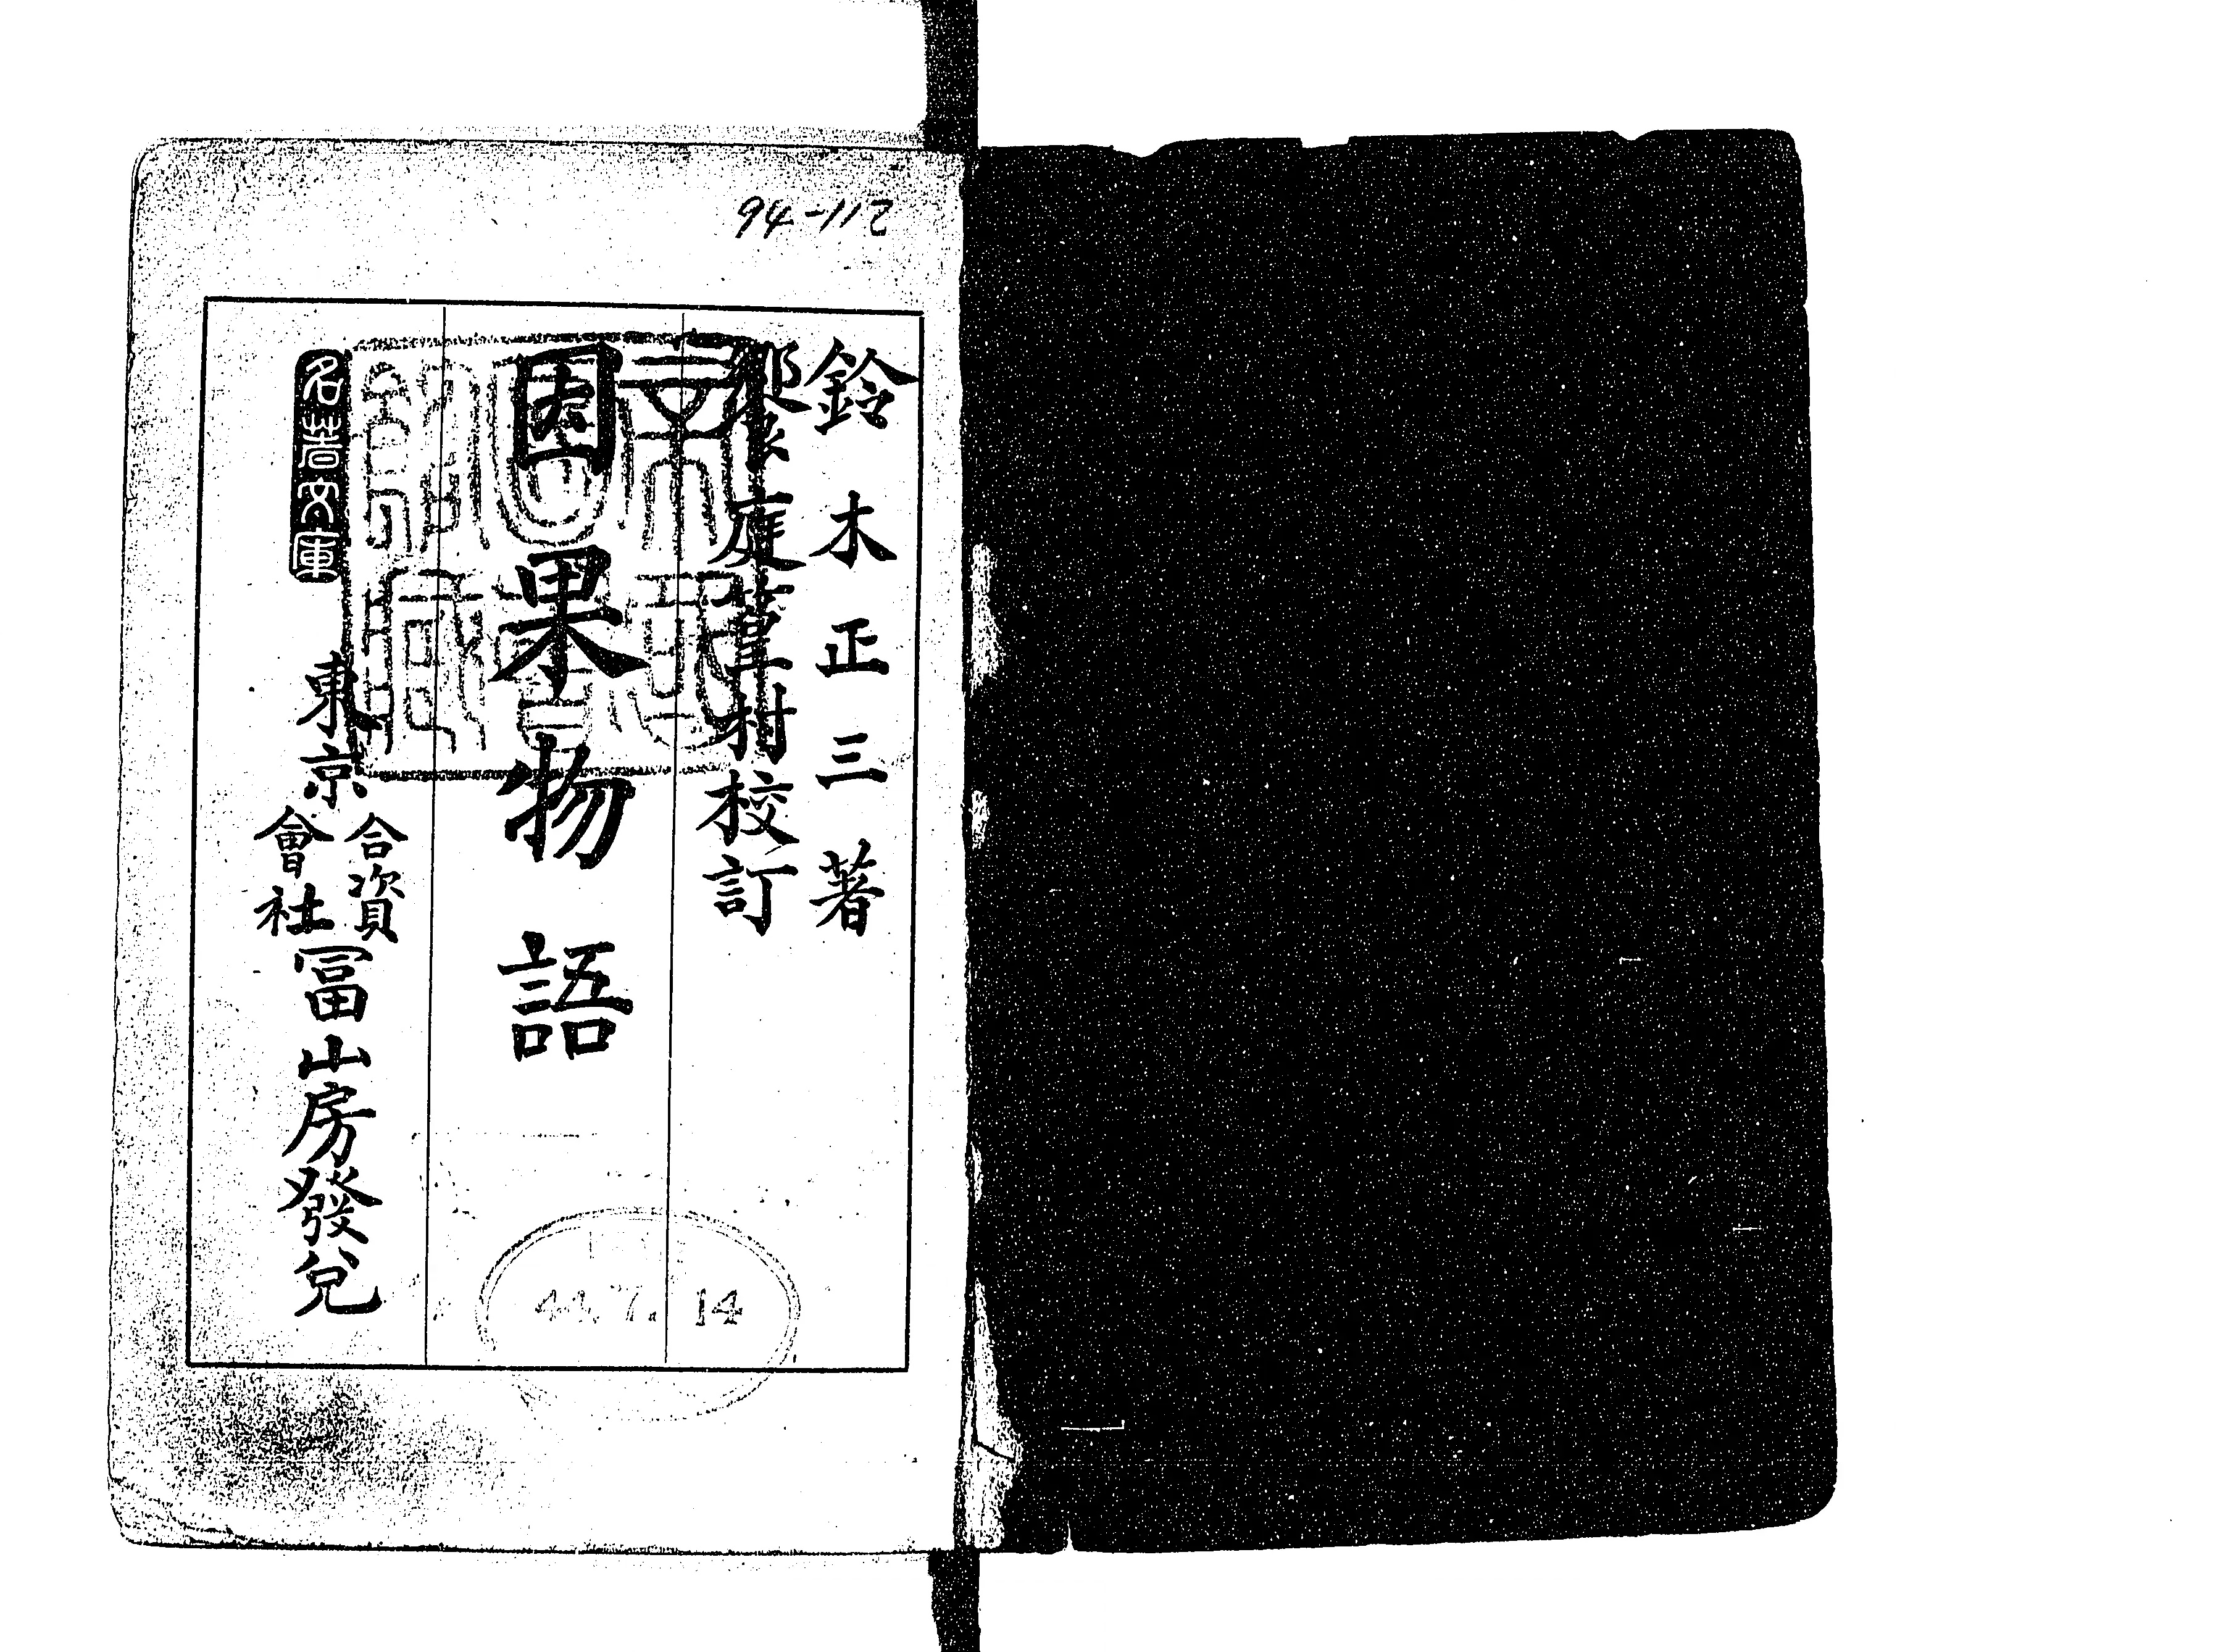 94-112
鈴木正三著
饗庭篁村校訂
因果物語
名著文庫
東京
合資
會社
冨山房發兌
44.7.14